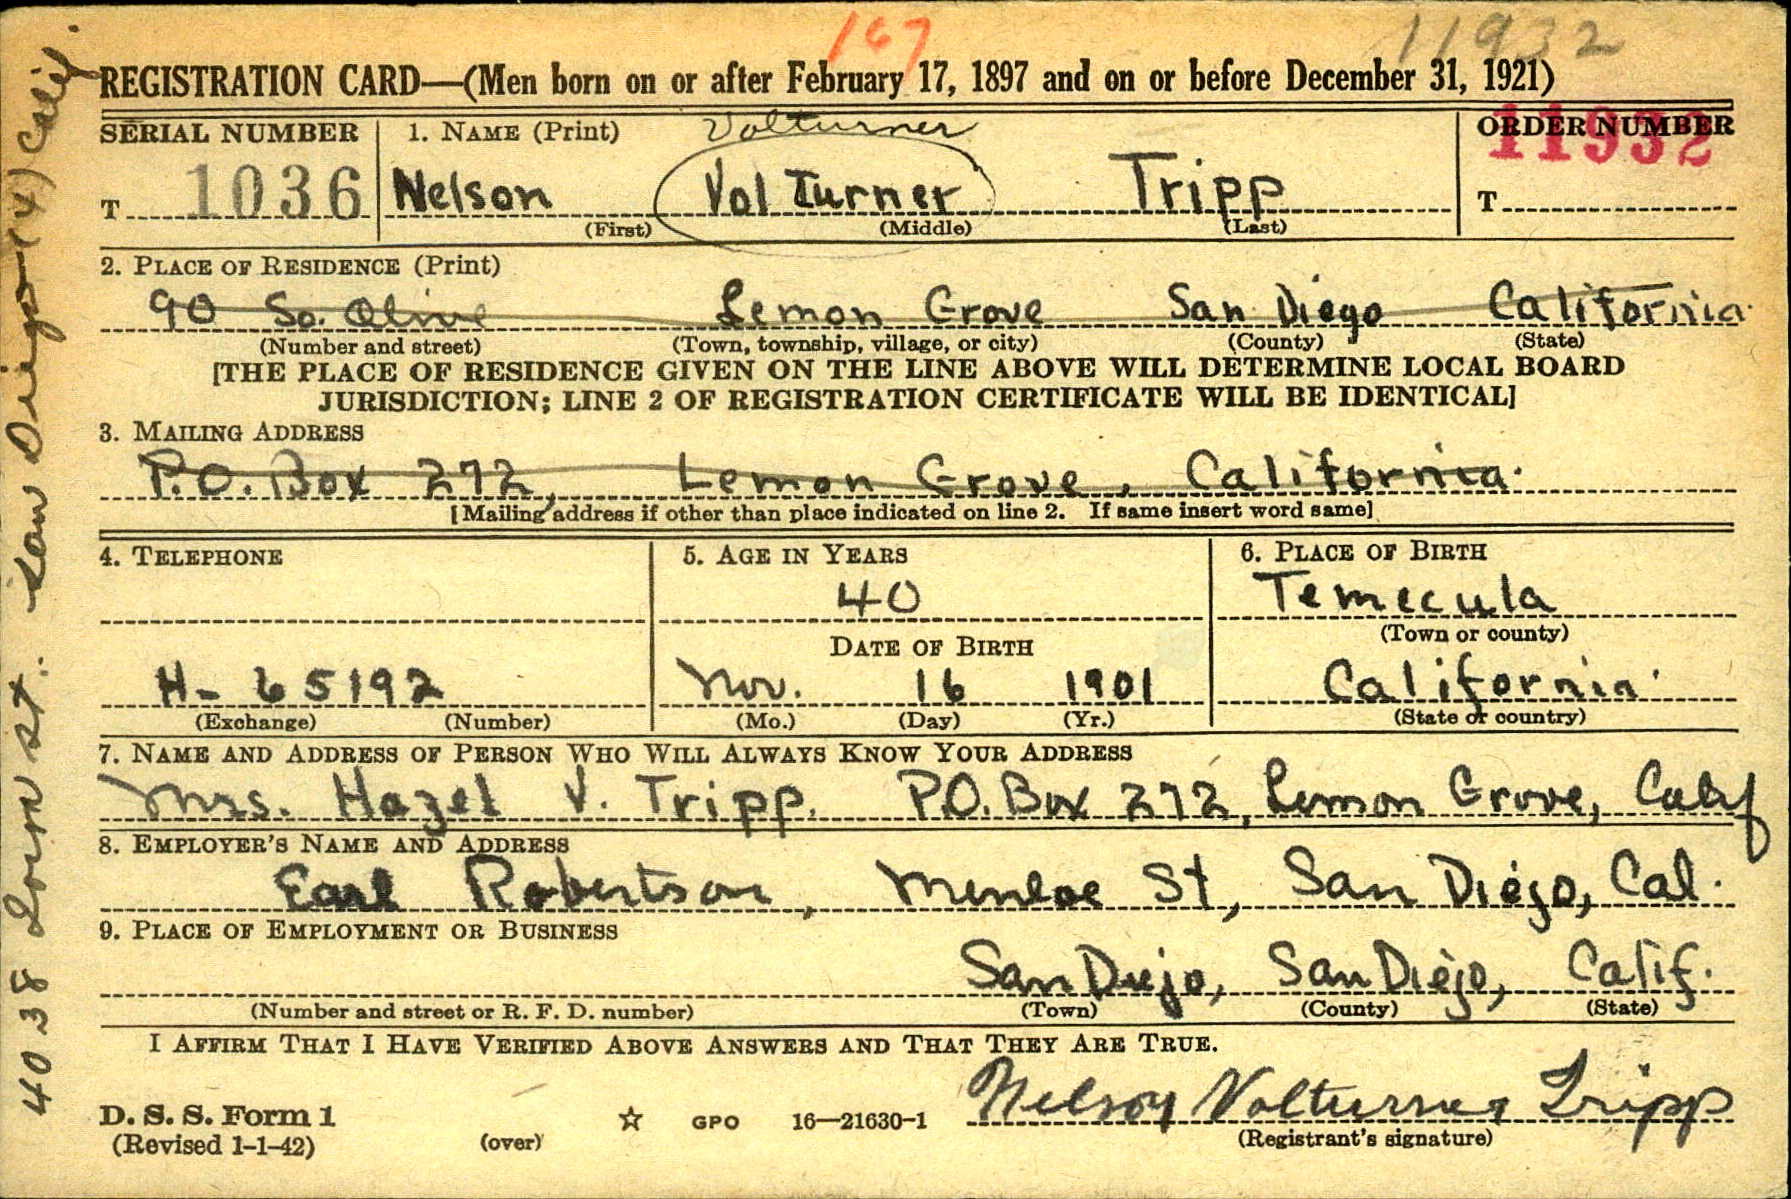 167
11932
REGISTRATION CARD—(Men born on or after February 17, 1897 and on or before December 31, 1921)
SERIAL NUMBER
1. NAME (Print)
Volturner
ORDER NUMBER
11932
T 1036
Nelson Vol Turner Tripp
T
(First) (Middle) (Last)
2. PLACE OF RESIDENCE (Print)
90 So. Olive Lemon Grove San Diego California
(Number and street) (Town, township, village, or city) (County) (State)
[THE PLACE OF RESIDENCE GIVEN ON THE LINE ABOVE WILL DETERMINE LOCAL BOARD
JURISDICTION; LINE 2 OF REGISTRATION CERTIFICATE WILL BE IDENTICAL]
3. MAILING ADDRESS
P.O. Box 272, Lemon Grove, California.
[Mailing address if other than place indicated on line 2. If same insert word same]
4. TELEPHONE
5. AGE IN YEARS
6. PLACE OF BIRTH
40
Temecula
(Town or county)
DATE OF BIRTH
H- 65192
Nov. 16 1901
California
(Exchange) (Number)
(Mo.) (Day) (Yr.)
(State or country)
7. NAME AND ADDRESS OF PERSON WHO WILL ALWAYS KNOW YOUR ADDRESS
Mrs. Hazel V. Tripp. P.O. Box 272, Lemon Grove, Calif
8. EMPLOYER'S NAME AND ADDRESS
Earl Robertson, Menloe St, San Diego, Cal.
9. PLACE OF EMPLOYMENT OR BUSINESS
San Diego, San Diego, Calif.
(Number and street or R. F. D. number) (Town) (County) (State)
I AFFIRM THAT I HAVE VERIFIED ABOVE ANSWERS AND THAT THEY ARE TRUE.
D. S. S. Form 1
(Revised 1-1-42)
(over)
GPO 16—21630-1
Nelson Volturner Tripp
(Registrant's signature)
4038 St. San Diego (4) Calif.